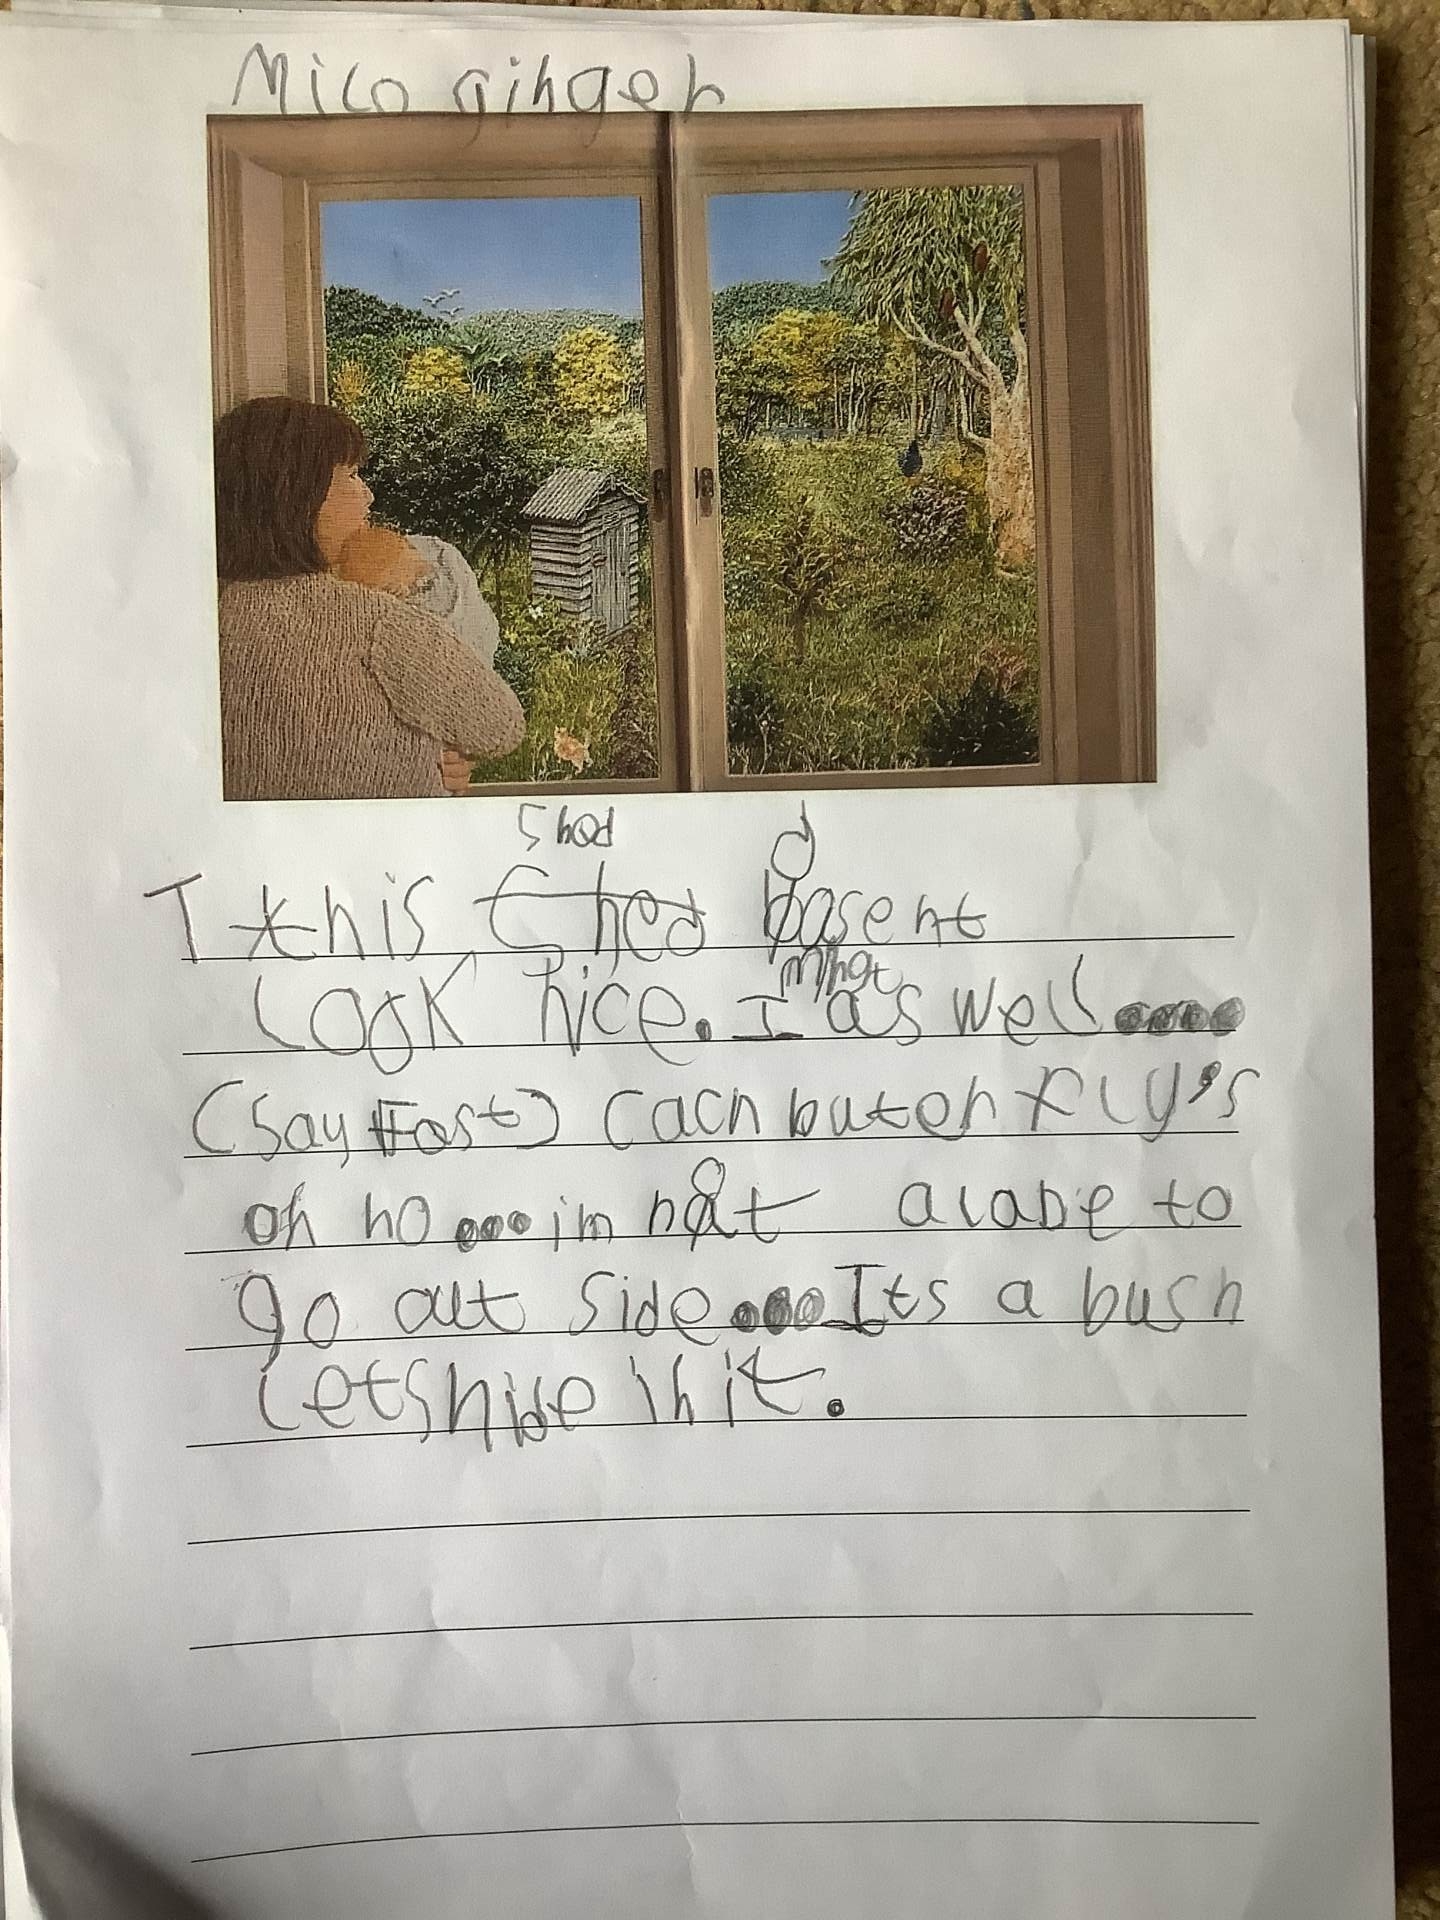 Mico ginger
Shed d
Tthis Shed basent
Look nice. I mhat as well....
(Say Fast) cach buterfly's
oh no... im not alabe to
go out side... Its a bush
Lets hide in it.